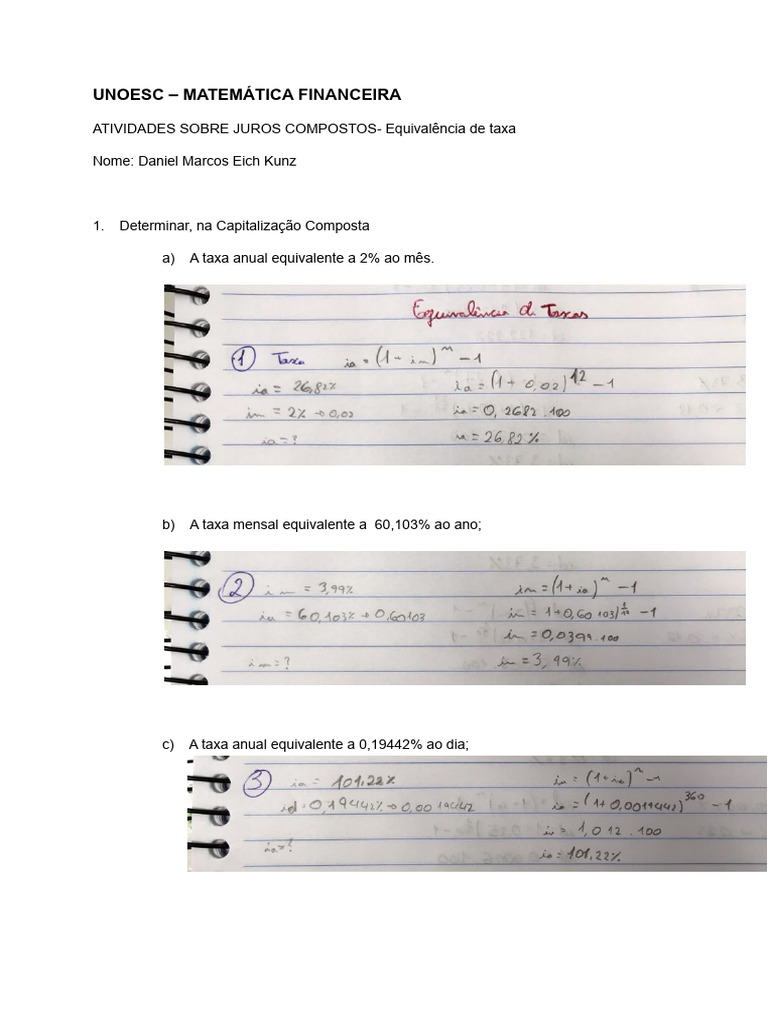 UNOESC – MATEMÁTICA FINANCEIRA
ATIVIDADES SOBRE JUROS COMPOSTOS- Equivalência de taxa
Nome: Daniel Marcos Eich Kunz
1. Determinar, na Capitalização Composta
a) A taxa anual equivalente a 2% ao mês.
Equivalência de Taxas
1 Taxa ia = (1 + im)^n - 1
ia = 26,82% ia = (1 + 0,02)^12 - 1
im = 2% → 0,02 ia = 0,2682 . 100
ia = ? ia = 26,82%
b) A taxa mensal equivalente a 60,103% ao ano;
2 im = 3,99% im = (1 + ia)^n - 1
ia = 60,103% → 0,60103 im = 1+0,60103)^1/12 - 1
im = 0,0399 . 100
im = ? im = 3,99%
c) A taxa anual equivalente a 0,19442% ao dia;
3 ia = 101,22% ia = (1 + ia)^n - 1
id = 0,19442% → 0,0019442 ia = (1+ 0,0019442)^360 - 1
ia = 1,012 . 100
ia = ? ia = 101,22%